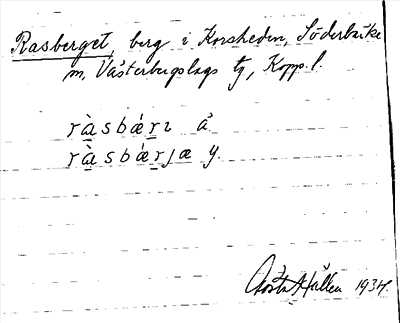 Rasberget, berg i Korsheden, Söderbärke
sn, Västerbergslags tg, Kopp. l.
ràsbǽrɿ å.
ràsbǽrjæ y.
1934.